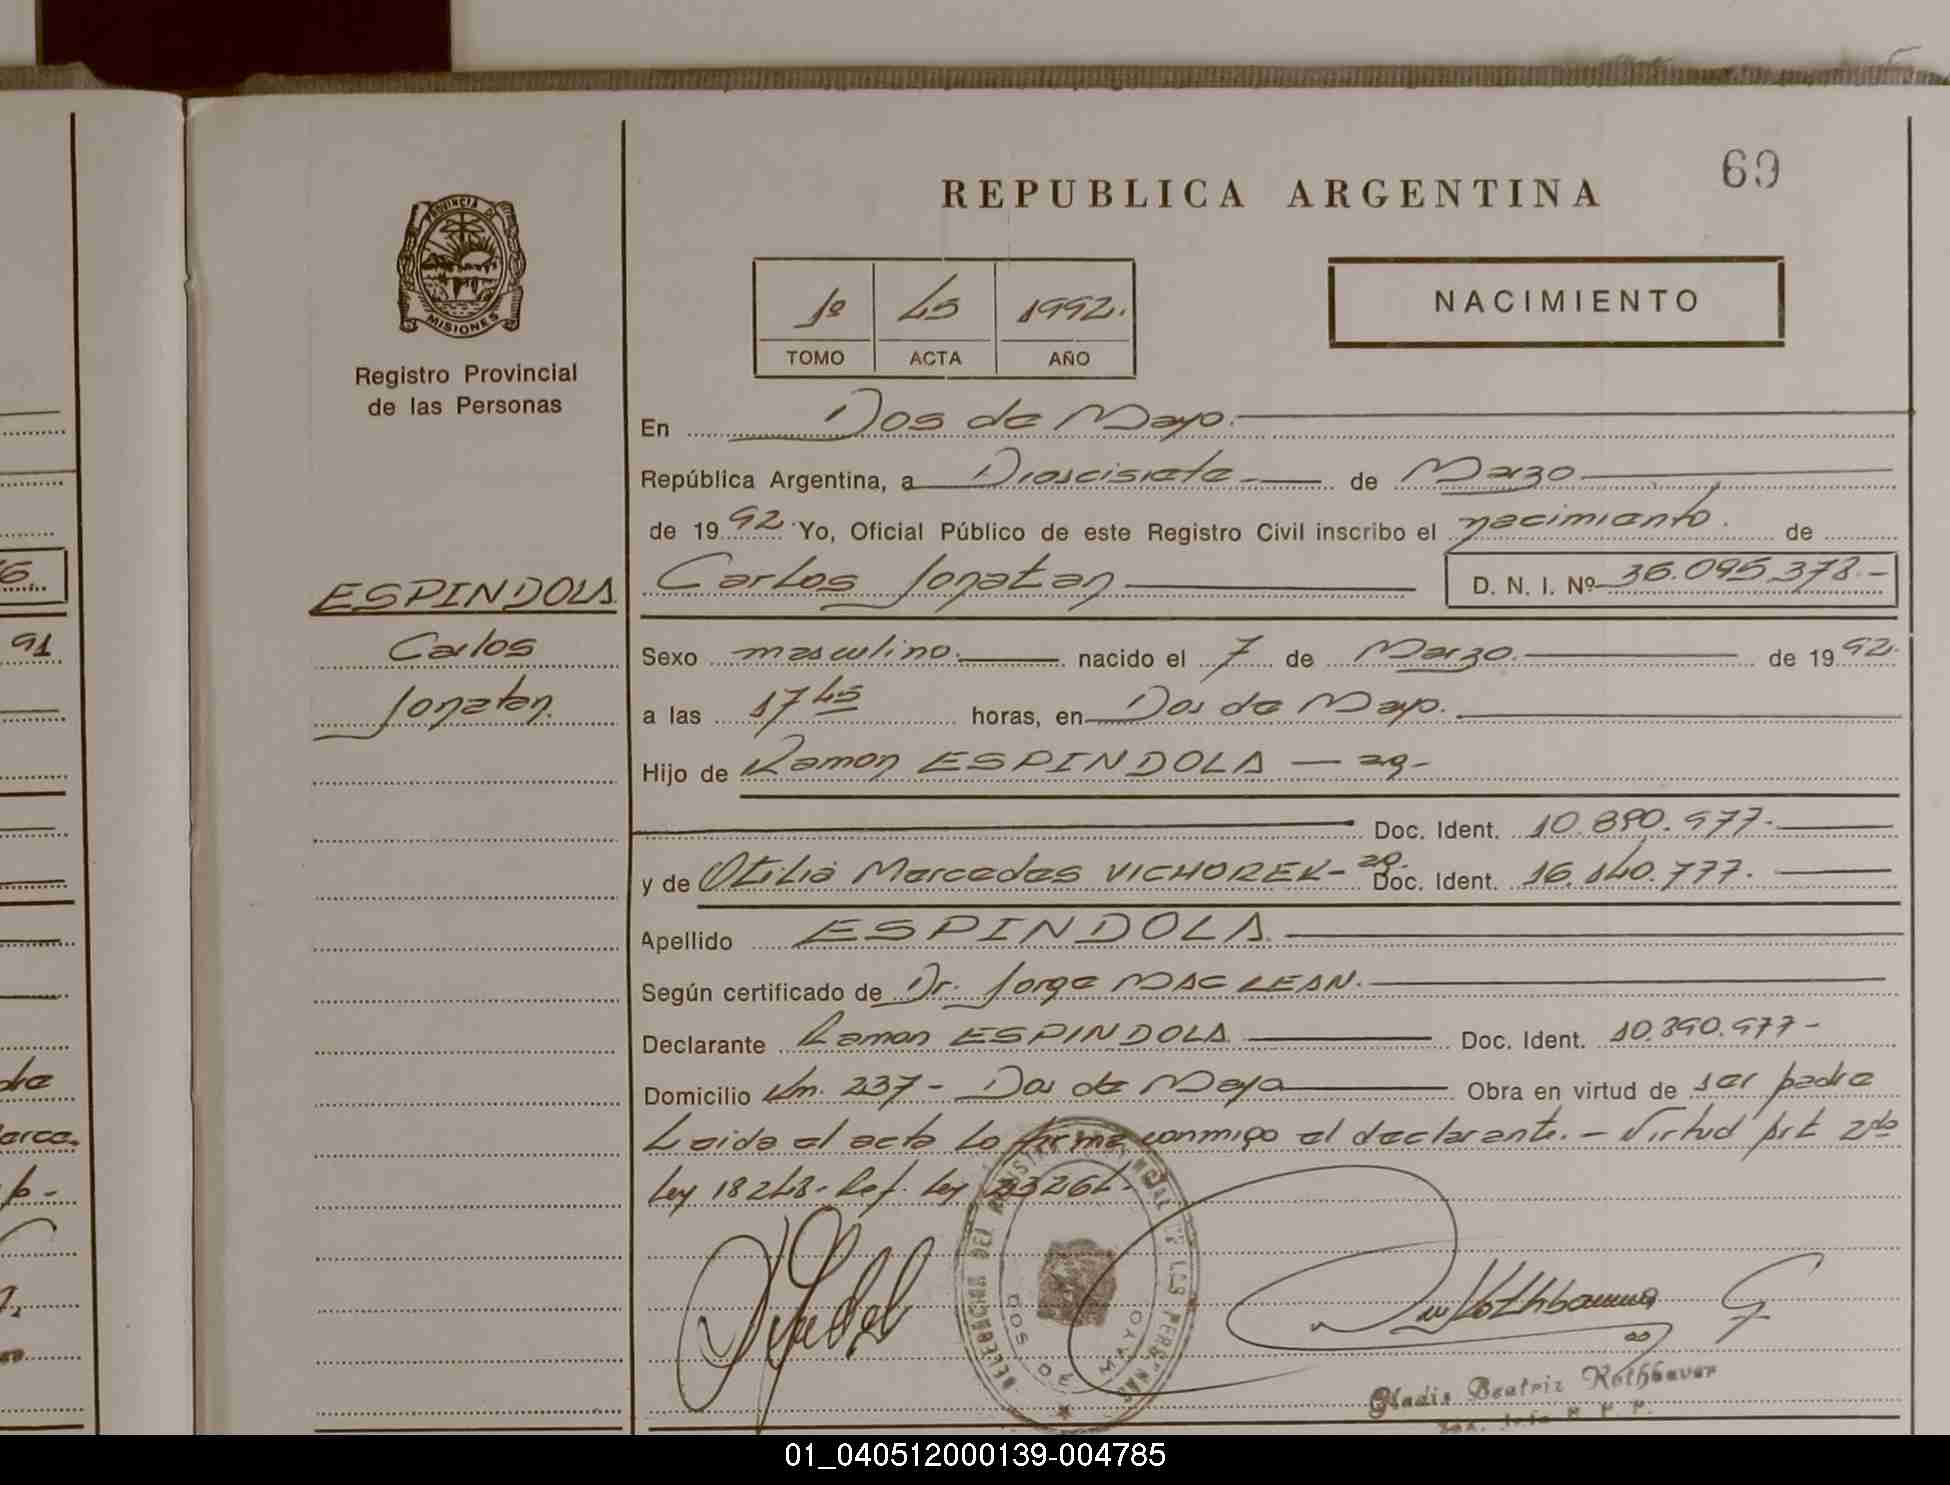 REPUBLICA ARGENTINA
69
PROVINCIA DE
MISIONES
Registro Provincial
de las Personas
1º 45 1992.
TOMO ACTA AÑO
NACIMIENTO
En Dos de Mayo.
República Argentina, a Diescisiete de Marzo
de 1992 Yo, Oficial Público de este Registro Civil inscribo el nacimiento. de
Carlos Jonatan D. N. I. Nº 36.095.378.-
ESPINDOLA
Carlos
Jonatan.
Sexo masculino. nacido el 7 de Marzo. de 1992.
a las 17 45 horas, en Dos de Mayo.
Hijo de Ramon ESPINDOLA — ag-
Doc. Ident. 10.890.977.-
y de Otilia Mercedes VICHOREK- ag. Doc. Ident. 16.140.777.
Apellido ESPINDOLA.
Según certificado de Dr. Jorge MAC LEAN.
Declarante Ramon ESPINDOLA Doc. Ident. 10.890.977-
Domicilio Km. 237- Dos de Mayo Obra en virtud de ser padre
Leida el acta la firma conmigo el declarante.- Virtud Art 2do
Ley 18248- Ref. Ley 23264.
DOS DE MAYO
Gladis Beatriz Rothbauer
91
01_040512000139-004785